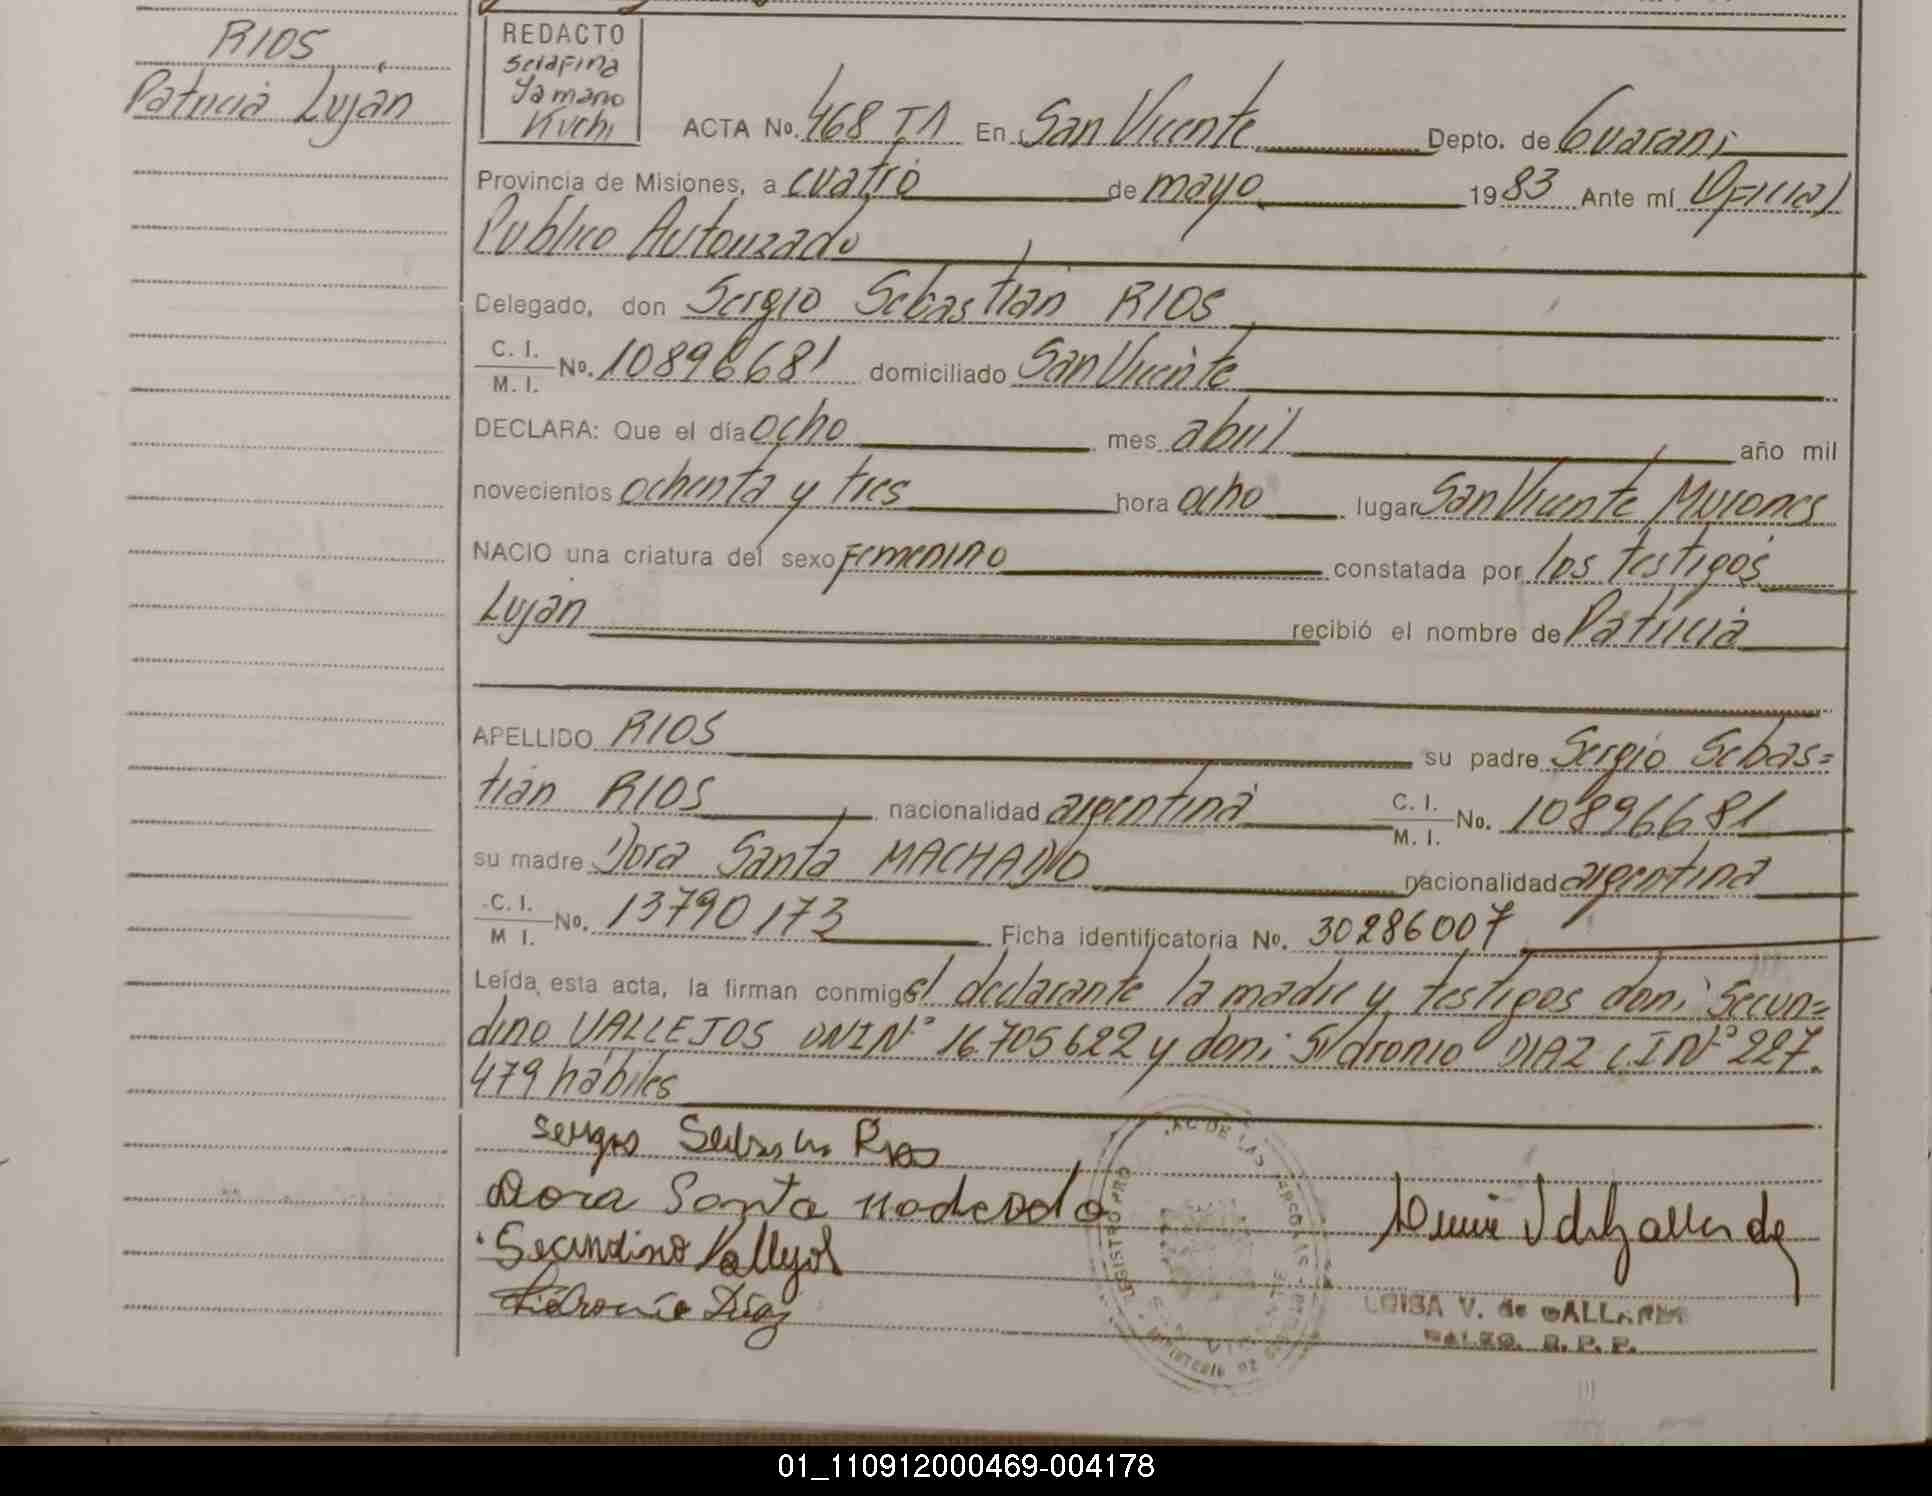 RIOS
Patricia Luján
REDACTO
Serafina
Yamano
Kuchi
ACTA No. 468 TA En San Vicente Depto. de Guaraní
Provincia de Misiones, a cuatro de mayo 1983 Ante mí Oficial
Público Autorizado
Delegado, don Sergio Sebastián RIOS
C. I.
M. I. No. 10896681 domiciliado San Vicente
DECLARA: Que el día ocho mes abril año mil
novecientos ochenta y tres hora ocho lugar San Vicente Misiones
NACIO una criatura del sexo Femenino constatada por los testigos
Luján recibió el nombre de Patricia
APELLIDO RIOS su padre Sergio Sebas=
tián RIOS nacionalidad argentina C. I.
M. I. No. 10896681
su madre Dora Santa MACHADO nacionalidad argentina
C. I.
M I. No. 13790173 Ficha identificatoria No. 30286007
Leída esta acta, la firman conmigo el declarante la madre y testigos don: Secun=
dino VALLEJOS DNI Nº 16.705622 y don: Sidronio DIAZ C.I Nº 227.
479 hábiles
Sergio Sebastian Rios
Dora Santa Machado
Secundino Vallejos
Sidronio Díaz
LUISA V. de GALLARDO